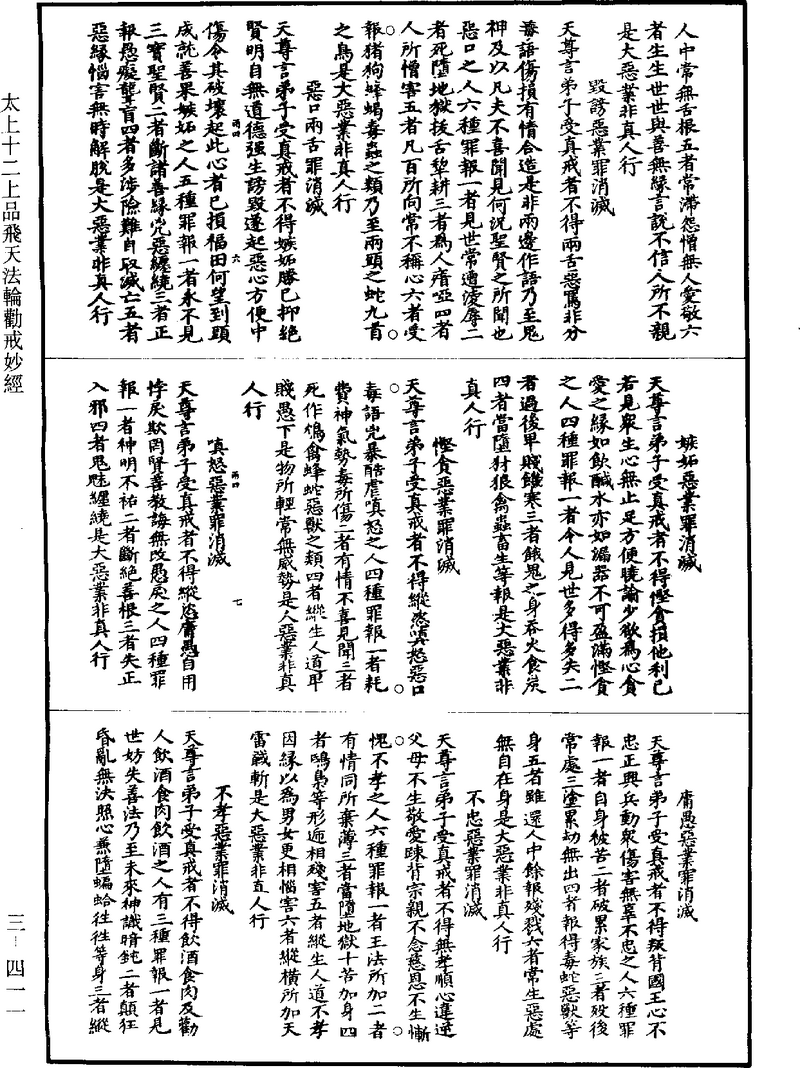 人中常無舌根五者常滯怨憎無人愛敬六
者生生世世與善無緣言說不信人所不親
是大惡業非真人行
毀謗惡業罪消滅
天尊言弟子受真戒者不得兩舌惡罵非分
毒語傷損有情合造是非兩邊作語乃至鬼
神及以凡夫不喜聞見何況聖賢之所聞也
惡口之人六種罪報一者見世常遭淩辱二
者死墮地獄拔舌犂耕三者為人瘖啞四者
人所憎害五者凡百所向常不稱心六者受
報猪狗蜂蝎毒蟲之類乃至兩頭之蛇九首
之鳥是大惡業非真人行
惡口兩舌罪消滅
天尊言弟子受真戒者不得嫉妬勝已抑絕
賢明自無道德强生謗毀遂起惡心方便中
傷令其破壞起此心者已損福田何望到頭
成就善果嫉妬之人五種罪報一者永不見
三寶聖賢二者斷諸善緣宂惡纏繞三者正
報愚癡聾盲四者多涉險難自取滅亡五者
惡緣惱害無時解脫是大惡業非真人行
嫉妬惡業罪消滅
天尊言弟子受真戒者不得慳貪損他利已
若見衆生心無止足方便曉諭少欲為心貪
愛之緣如飲鹹水亦如漏器不可盈滿慳貪
之人四種罪報一者令人見世多得多失二
者過後卑賤饑寒三者餓鬼之身吞火食炭
四者當墮犲狼禽蟲畜生等報是大惡業非
真人行
慳貪惡業罪消滅
天尊言弟子受真戒者不得縱恣嗔怒惡口
毒語兇暴酷虐嗔怒之人四種罪報一者耗
費神氣勢毒所傷二者有情不喜見聞三者
死作鴆禽蜂蛇惡獸之類四者縱生人道卑
賤愚下是物所輕常無威勢是人惡業非真
人行
嗔怒惡業罪消滅
天尊言弟子受真戒者不得縱恣庸愚自用
悖戾欺罔賢善教誨無改愚戾之人四種罪
報一者神明不祐二者斷絕善根三者失正
入邪四者鬼魅纏繞是大惡業非真人行
庸愚惡業罪消滅
天尊言弟子受真戒者不得叛背國王心不
忠正興兵動衆傷害無辜不忠之人六種罪
報一者自身被苦二者破累家族三者歿後
常處三塗累劫無出四者報得毒蛇惡獸等
身五者雖還人中餘報殘戮六者常生惡處
無自在身是大惡業非真人行
不忠惡業罪消滅
天尊言弟子受真戒者不得無孝順心違逆
父母不生敬愛踈背宗親不念慈恩不生慚
愧不孝之人六種罪報一者王法所加二者
有情同所棄薄三者當墮地獄十苦加身四
者鴟梟等形遞相殘害五者縱生人道不孝
因緣以為男女更相惱害六者縱橫所加天
雷誅斬是大惡業非真人行
不孝惡業罪消滅
天尊言弟子受真戒者不得飲酒食肉及勸
人飲酒食肉飲酒之人有三種罪報一者見
世妨失善法乃至未來神識暗鈍二者顛狂
昏亂無決照心兼墮蝙蛤狌狌等身三者縱
太上十二上品飛天法輪勸戒妙經
三—四一一